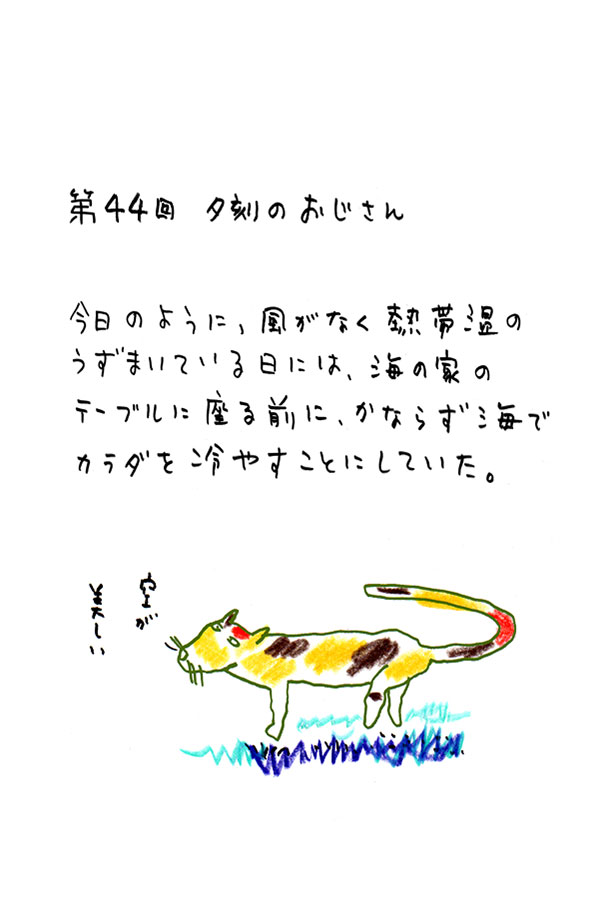 第44回 夕刻のおじさん
今日のように、風がなく熱帯湿の
うずまいている日には、海の家の
テーブルに座る前に、かならず海で
カラダを冷やすことにしていた。
空が
美しい